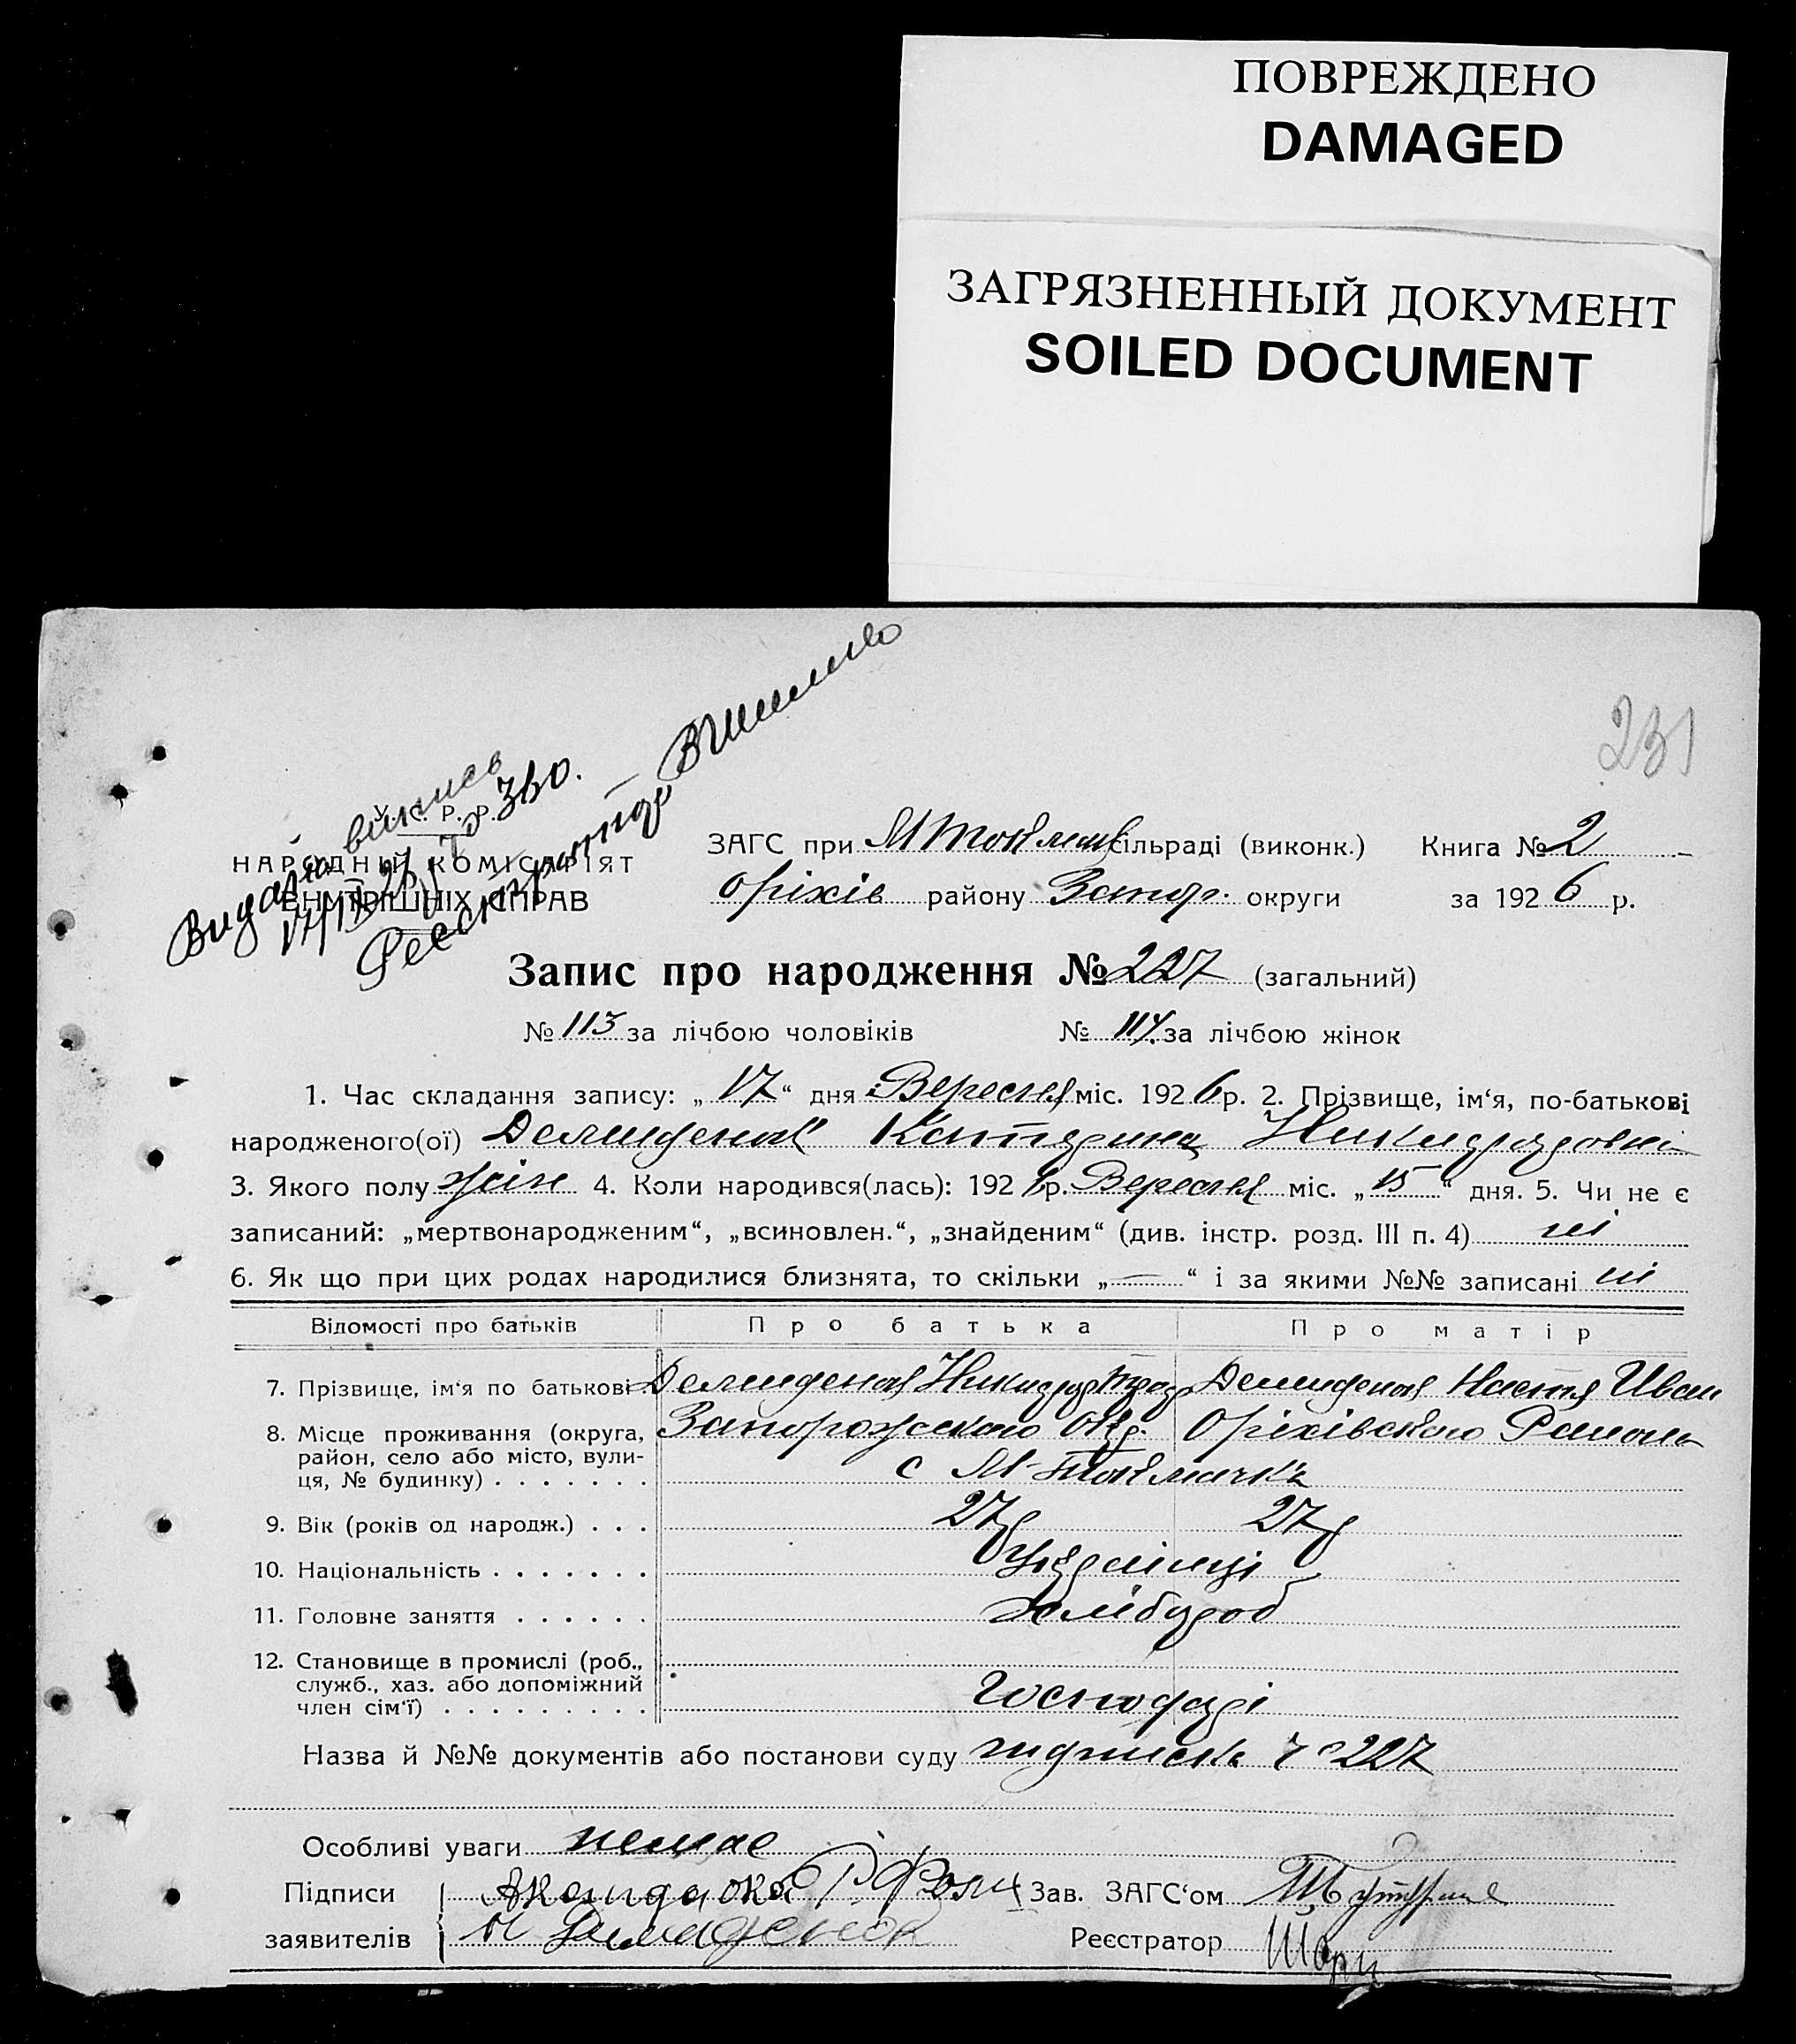 ПОВРЕЖДЕНО
DAMAGED
ЗАГРЯЗНЕННЫЙ ДОКУМЕНТ
SOILED DOCUMENT
231
Р. Р.
НАРОДНЫЙ КОМІСАРІЯТ
ВНУТРІШНІХ СПРАВ
ЗАГС при сільраді (виконк.) Книга № 2
Оріхів району Запор. округи за 1926 р.
Запис про народження № 227 (загальний)
№ 113 за лічбою чоловіків № 114. за лічбою жінок
1. Час складання запису: „ 17 “ дня Вересня міс. 1926 р. 2. Прізвище, ім‘я, по-батькові
народженого(ої) Демиденко Катярина
3. Якого полу жін 4. Коли народився(лась): 192 6 р. Вересня міс. „ 15 “ дня. 5. Чи не є
записаний: „мертвонародженим“, „всиновлен.“, „знайденим“ (див. інстр. розд. III п. 4) ні
6. Як що при цих родах народилися близнята, то скільки „ — “ і за якими №№ записані ні
Відомості про батьків Про батька Про матір
7. Прізвище, ім‘я по батькові Демиденко Демиденко Настя Иван
8. Місце проживання (округа, район, село або місто, вулиця, № будинку) . . . . . . . Запорожського Окр. Оріхівського Района
с М-Токмачка
9. Вік (років од народж.) . . . 27 р 27 р
10. Національність . . . . . . . Українці
11. Головне заняття . . . . . . Хлібороб
12. Становище в промислі (роб., служб., хаз. або допоміжний член сім‘ї) . . . . . . . . . Господарі
Назва й №№ документів або постанови суду підписка 227
Особливі уваги немає
Підписи Зав. ЗАГС‘ом
заявителів Демиденко Реєстратор